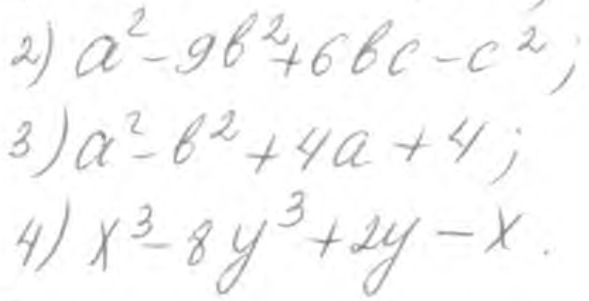 2) a² - 9b² + 6bc - c²;
3) a² - b² + 4a + 4;
4) x³ - 8y³ + 2y - x.